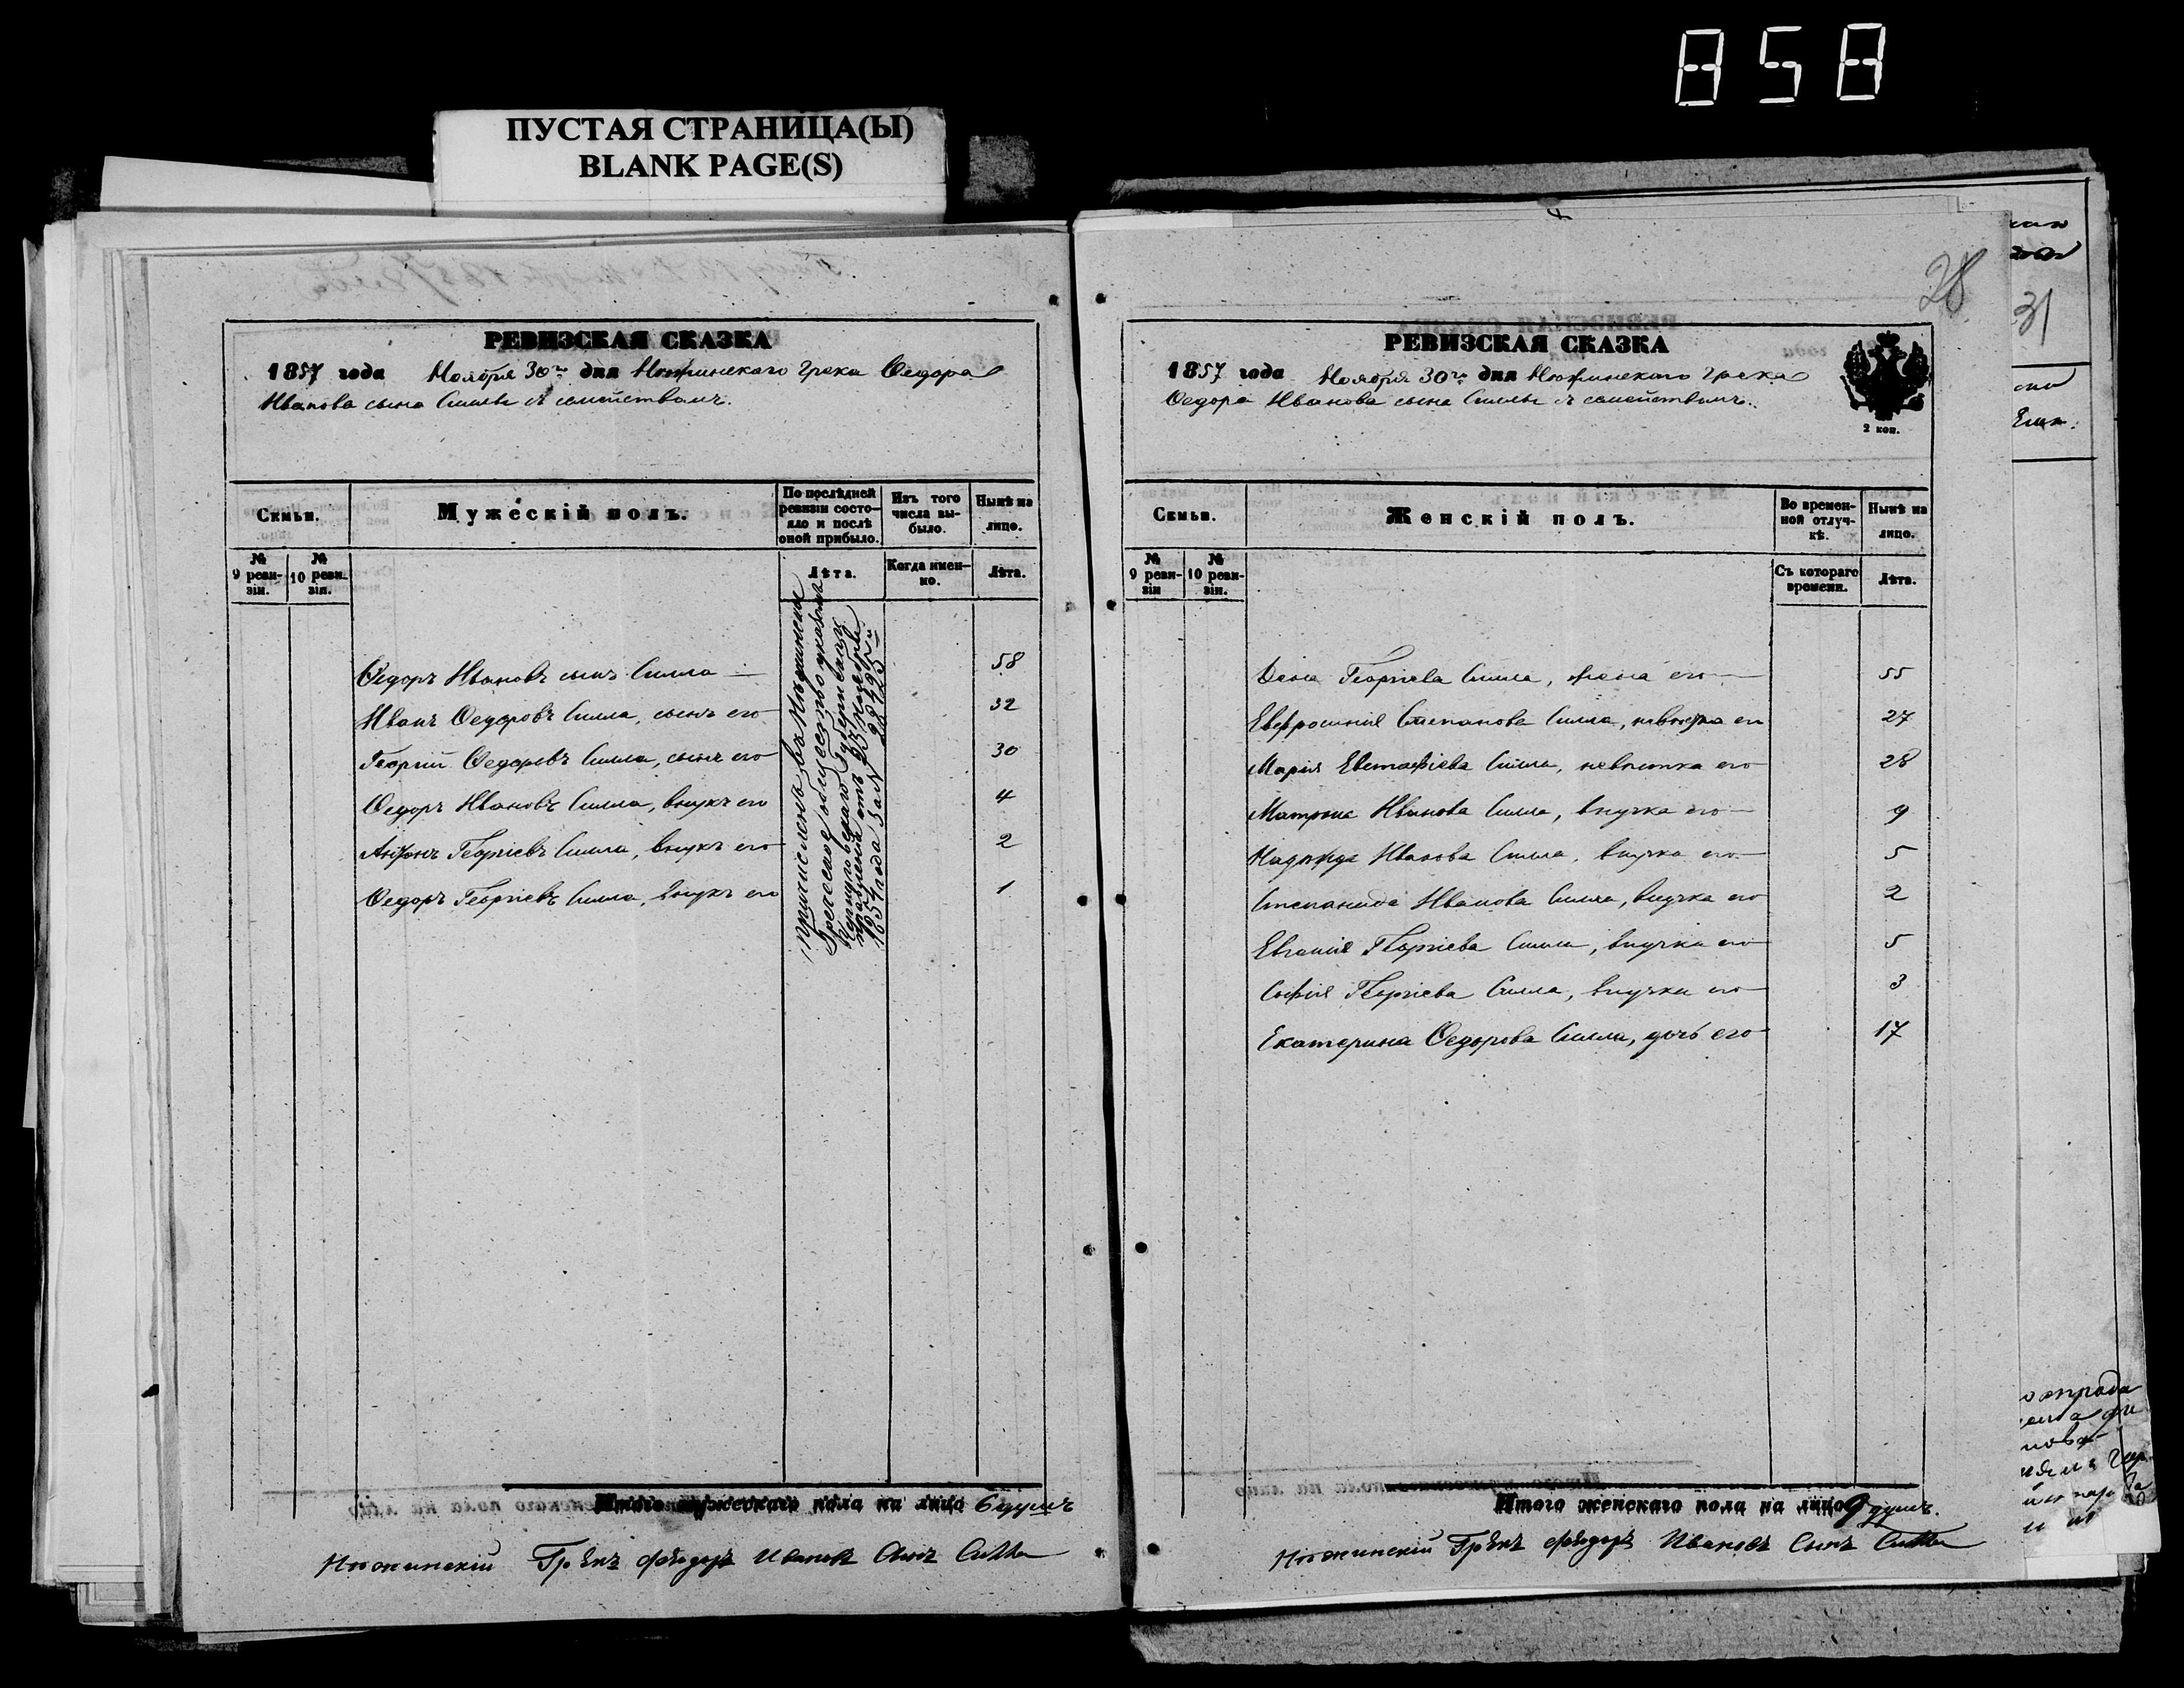 858
ПУСТАЯ СТРАНИЦА(Ы)
BLANK PAGE(S)
РЕВИЗСКАЯ СКАЗКА
1857 года Ноября 30го дня Нѣжинскаго Грека Ѳедора
Иванова сына Силлы съ семействомъ.
Скмьи.
Мужескій полъ.
По послѣдней ревизіи состояло и послѣ оной прибыло.
Изъ того числа выбыло.
Нынѣ на лицо.
№ 9 ревизіи.
№ 10 ревизіи.
Лѣта.
Когда именно.
Лѣта.
Ѳедоръ Ивановъ сынъ Силла 58
Иванъ Ѳедоровъ Силла, сынъ его 32
Георгій Ѳедоровъ Силла, сынъ его 30
Ѳедоръ Ивановъ Силла, внукъ его 4
Антонъ Георгіевъ Силла, внукъ его 2
Ѳедоръ Георгіевъ Силла, внукъ его 1
причисленъ въ Нѣжинское
Греческое общество указомъ
Губернскаго
правленія отъ 23
1854 года за №
Итого мужескаго пола на лицо 6 душъ
Нѣжинскій Грѣкъ Фѣодоръ Ивановъ Сынъ Силла
28
РЕВИЗСКАЯ СКАЗКА
1857 года Ноября 30го дня Нѣжинскаго Грека
Ѳедора Иванова сына Силлы съ семействомъ.
2 коп.
Скмьи.
Женскій полъ.
Во временной отлучкѣ.
Нынѣ на лицо.
№ 9 ревизіи
№ 10 ревизіи.
Съ котораго времени.
Лѣта.
Георгіева Силла, жена его 55
Евфросинія Степанова Силла, невѣстка его 27
Марія Евстафіева Силла, невѣстка его 28
Матрона Иванова Силла, внучка его 9
Надежда Иванова Силла, внучка его 5
Степанида Иванова Силла, внучка его 2
Евгенія Георгіева Силла, внучка его 5
Софія Георгіева Силла, внучка его 3
Екатерина Ѳедорова Силла, дочь его 17
Итого женскаго пола на лицо 9 душъ.
Нѣжинскій Грѣкъ Фѣодоръ Ивановъ Сынъ Силла
31